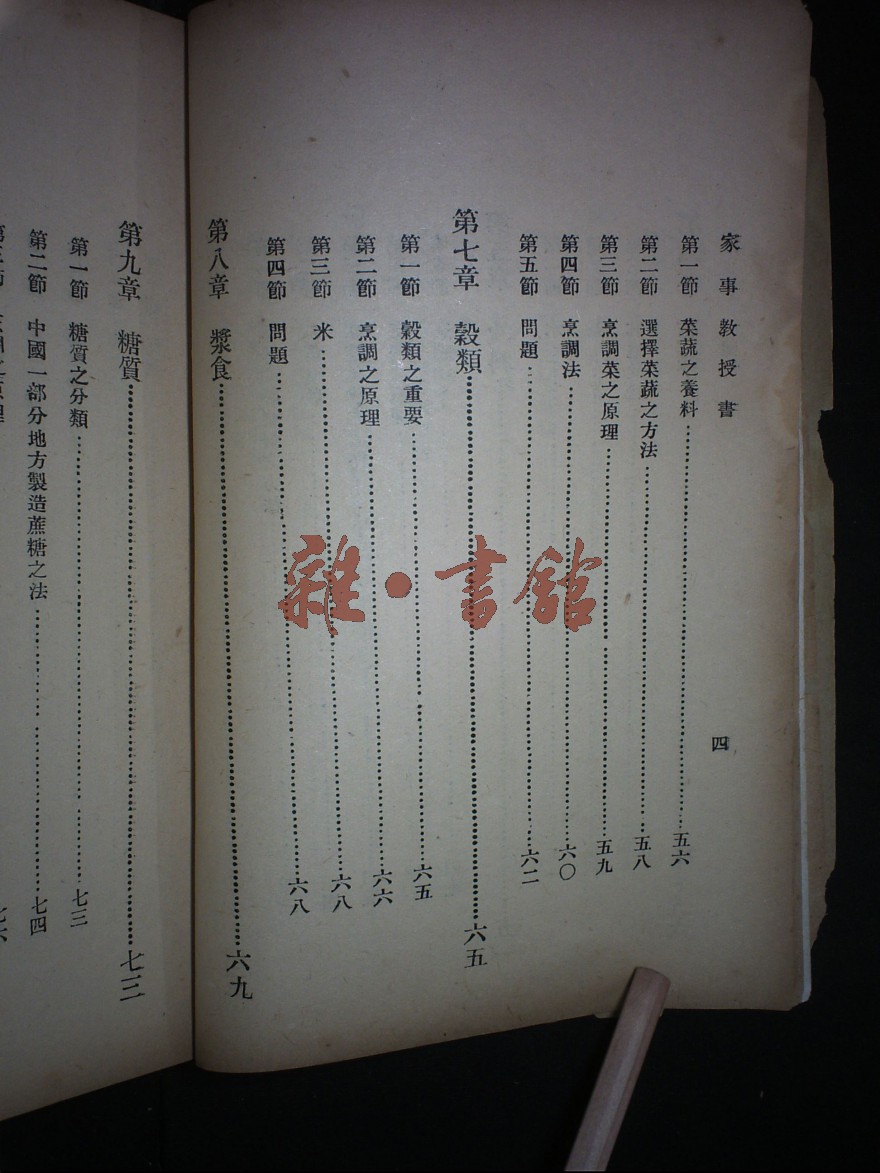 家事教授書
四
第一節　菜蔬之養料……五六
第二節　選擇菜蔬之方法……五八
第三節　烹調菜之原理……五九
第四節　烹調法……六〇
第五節　問題……六二
第七章　穀類……六五
第一節　穀類之重要……六五
第二節　烹調之原理……六六
第三節　米……六八
第四節　問題……六八
第八章　漿食……六九
第九章　糖質……七三
第一節　糖質之分類……七三
第二節　中國一部分地方製造蔗糖之法……七四
雜·書館